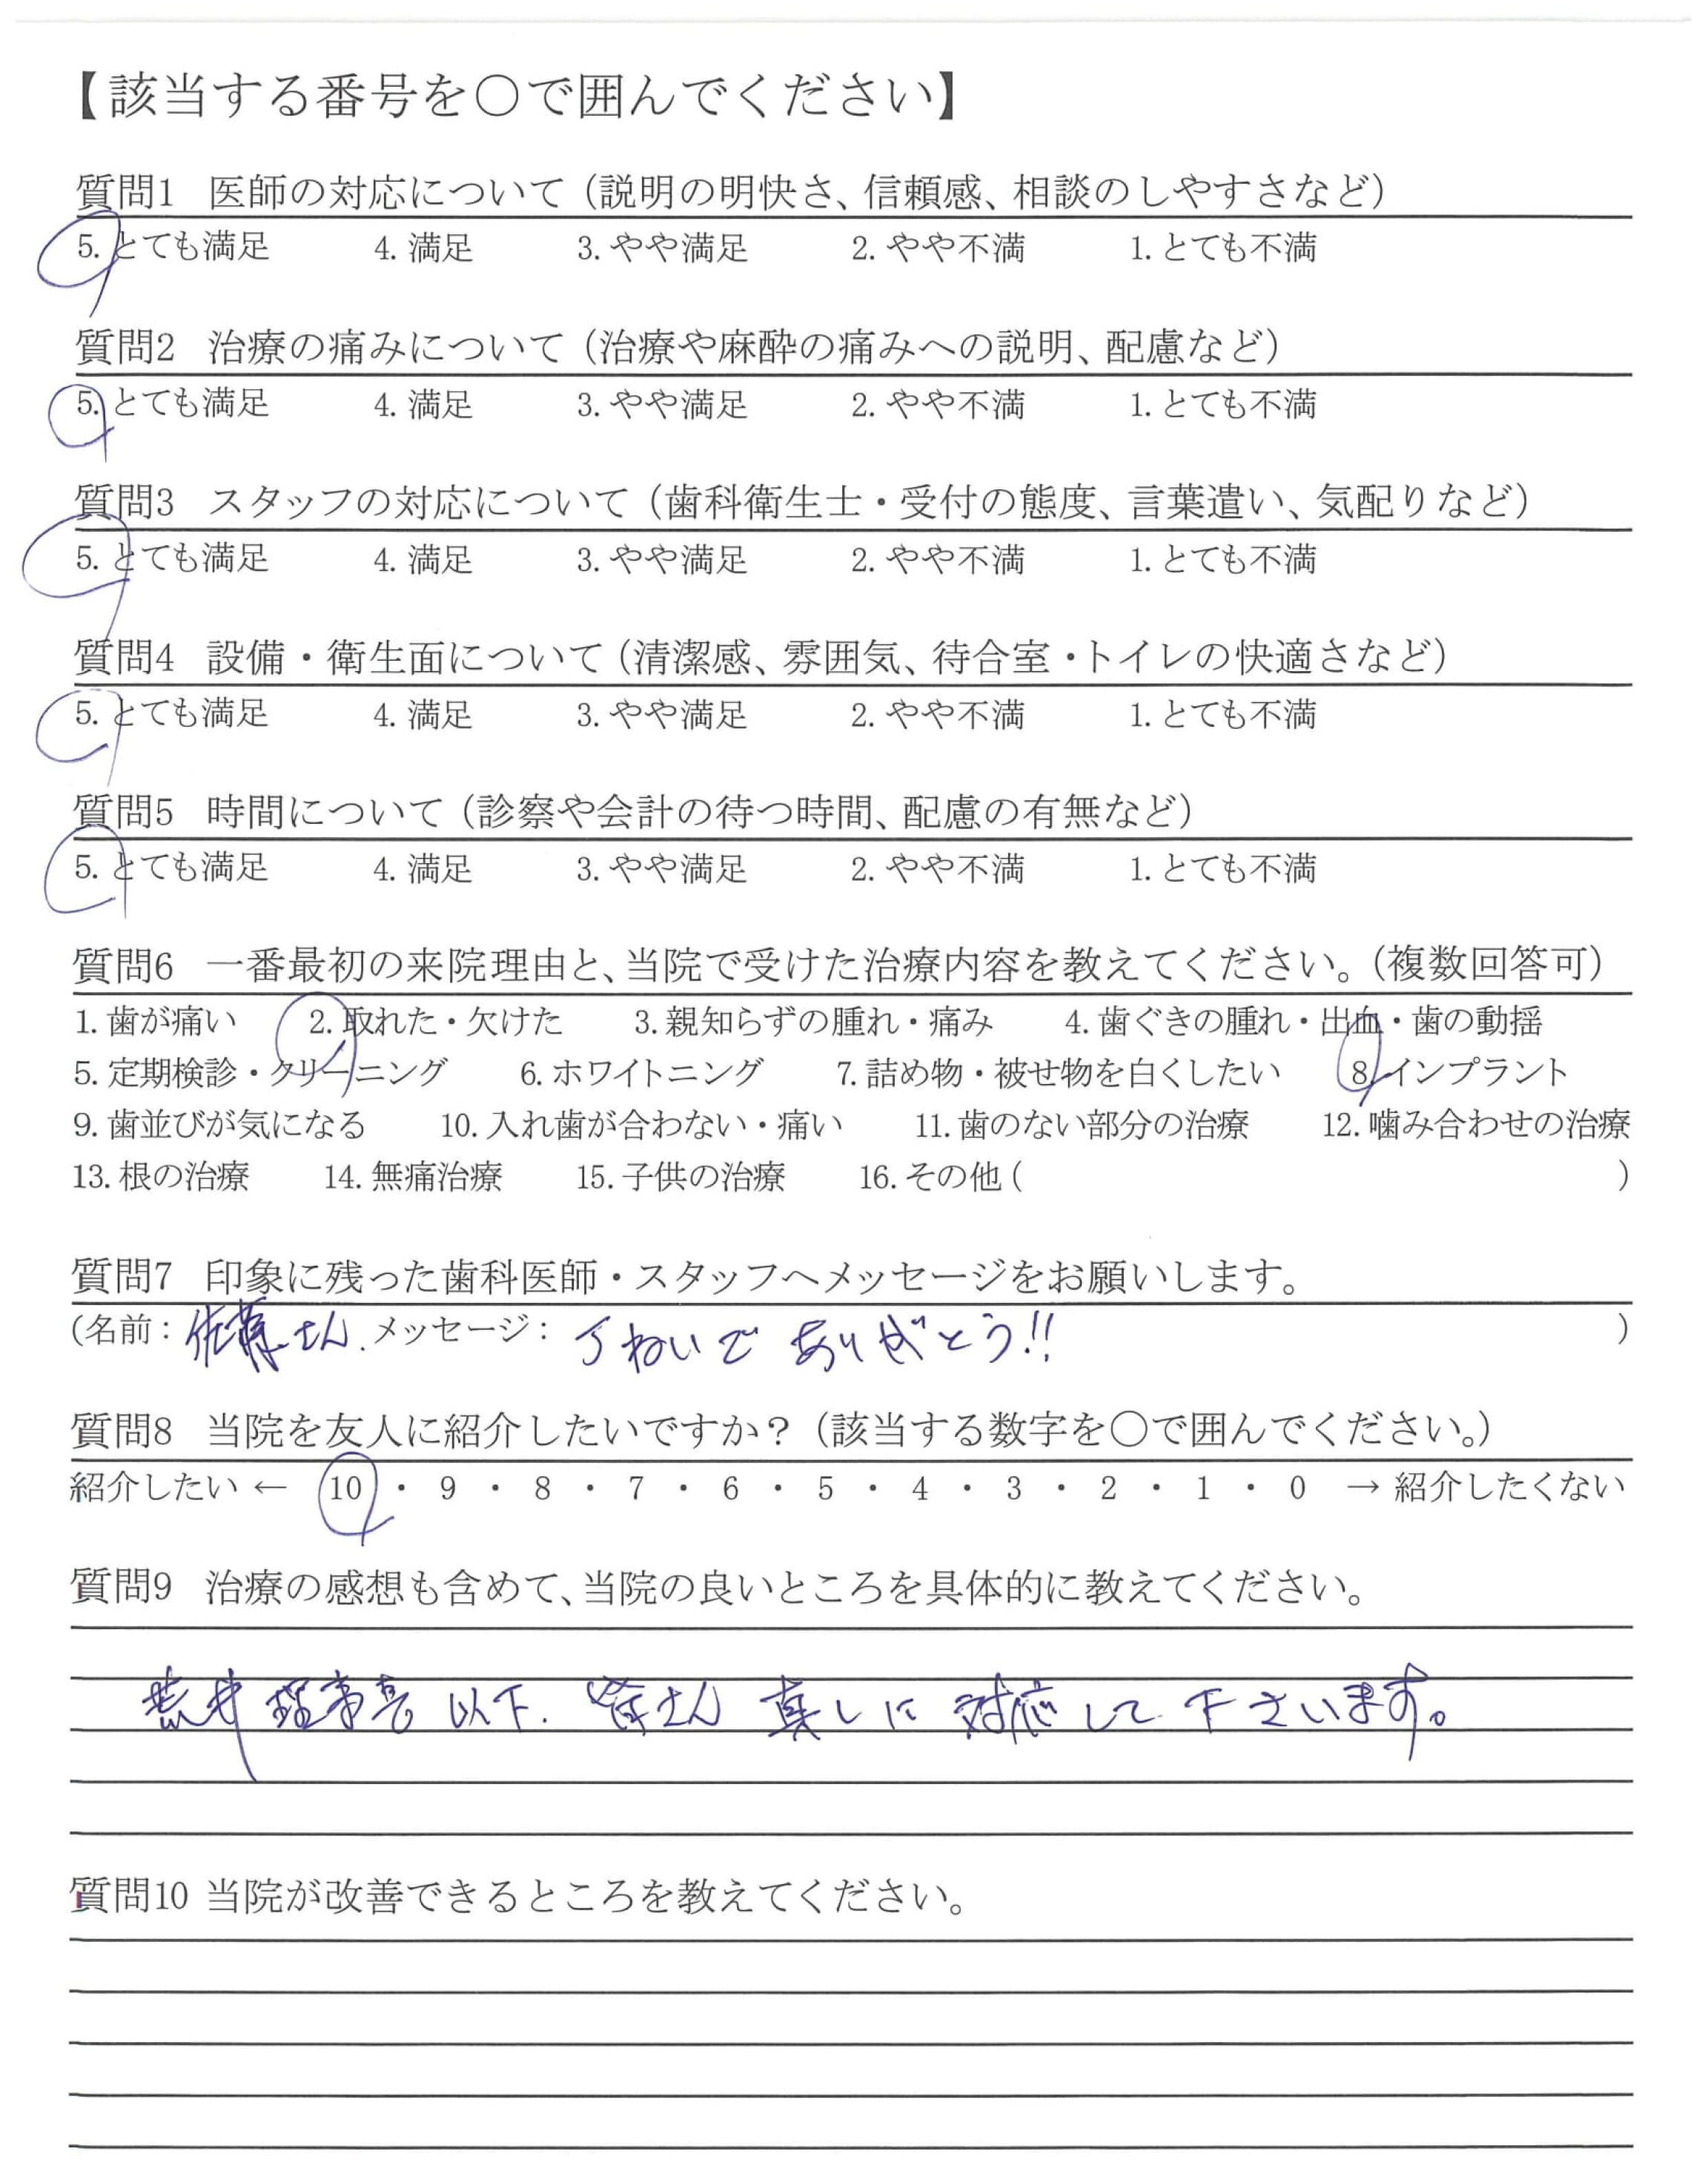 【該当する番号を○で囲んでください】
質問1 医師の対応について（説明の明快さ、信頼感、相談のしやすさなど）
5. とても満足 4. 満足 3. やや満足 2. やや不満 1. とても不満
質問2 治療の痛みについて（治療や麻酔の痛みへの説明、配慮など）
5. とても満足 4. 満足 3. やや満足 2. やや不満 1. とても不満
質問3 スタッフの対応について（歯科衛生士・受付の態度、言葉遣い、気配りなど）
5. とても満足 4. 満足 3. やや満足 2. やや不満 1. とても不満
質問4 設備・衛生面について（清潔感、雰囲気、待合室・トイレの快適さなど）
5. とても満足 4. 満足 3. やや満足 2. やや不満 1. とても不満
質問5 時間について（診察や会計の待つ時間、配慮の有無など）
5. とても満足 4. 満足 3. やや満足 2. やや不満 1. とても不満
質問6 一番最初の来院理由と、当院で受けた治療内容を教えてください。（複数回答可）
1. 歯が痛い 2. 取れた・欠けた 3. 親知らずの腫れ・痛み 4. 歯ぐきの腫れ・出血・歯の動揺
5. 定期検診・クリーニング 6. ホワイトニング 7. 詰め物・被せ物を白くしたい 8. インプラント
9. 歯並びが気になる 10. 入れ歯が合わない・痛い 11. 歯のない部分の治療 12. 噛み合わせの治療
13. 根の治療 14. 無痛治療 15. 子供の治療 16. その他（ ）
質問7 印象に残った歯科医師・スタッフへメッセージをお願いします。
（名前：佐藤さん. メッセージ：丁ねいで ありがとう!! ）
質問8 当院を友人に紹介したいですか？（該当する数字を○で囲んでください。）
紹介したい ← 10 ・ 9 ・ 8 ・ 7 ・ 6 ・ 5 ・ 4 ・ 3 ・ 2 ・ 1 ・ 0 → 紹介したくない
質問9 治療の感想も含めて、当院の良いところを具体的に教えてください。
荒井 理事長 以下. 皆さん 真しに 対応して 下さいます。
質問10 当院が改善できるところを教えてください。